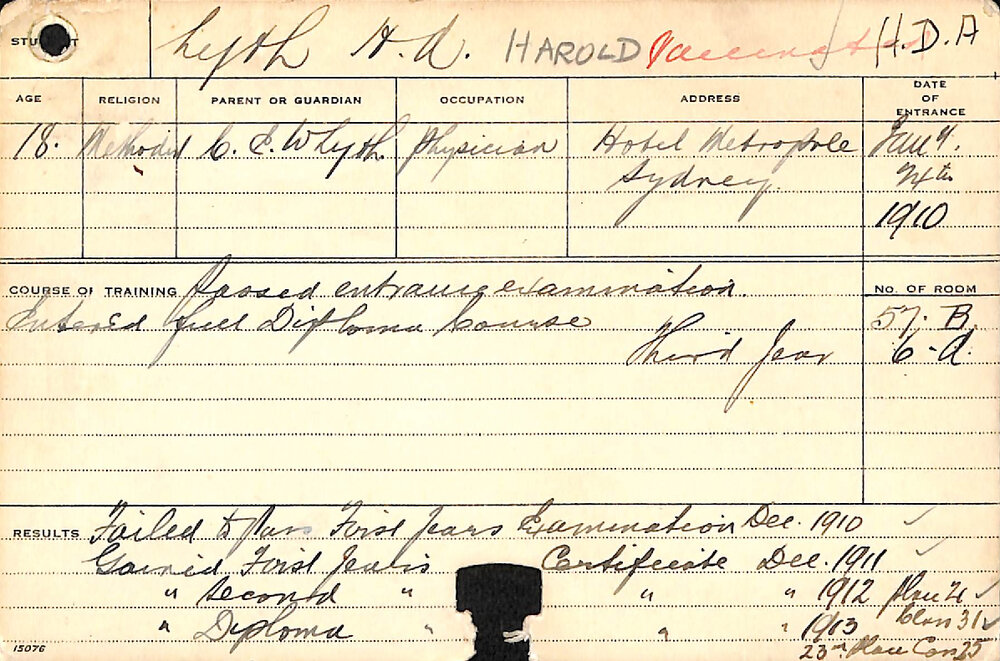 STUDENT Lyth H.A. HAROLD H.D.A
AGE RELIGION PARENT OR GUARDIAN OCCUPATION ADDRESS DATE OF ENTRANCE
18. Methodist C. E. W Lyth. Physician Hotel Metropole
Sydney.
1910
COURSE OF TRAINING Passed entrance examination. No. OF ROOM
Entered full Diploma Course 57. B.
Third Year 6-A.
RESULTS Failed to Pass First Years Examination Dec. 1910 ✓
Gained First Years Certificate Dec. 1911 ✓
" Second " " " 1912 ✓
" Diploma " " " 1913 Class 31 ✓
15076 23rd Place